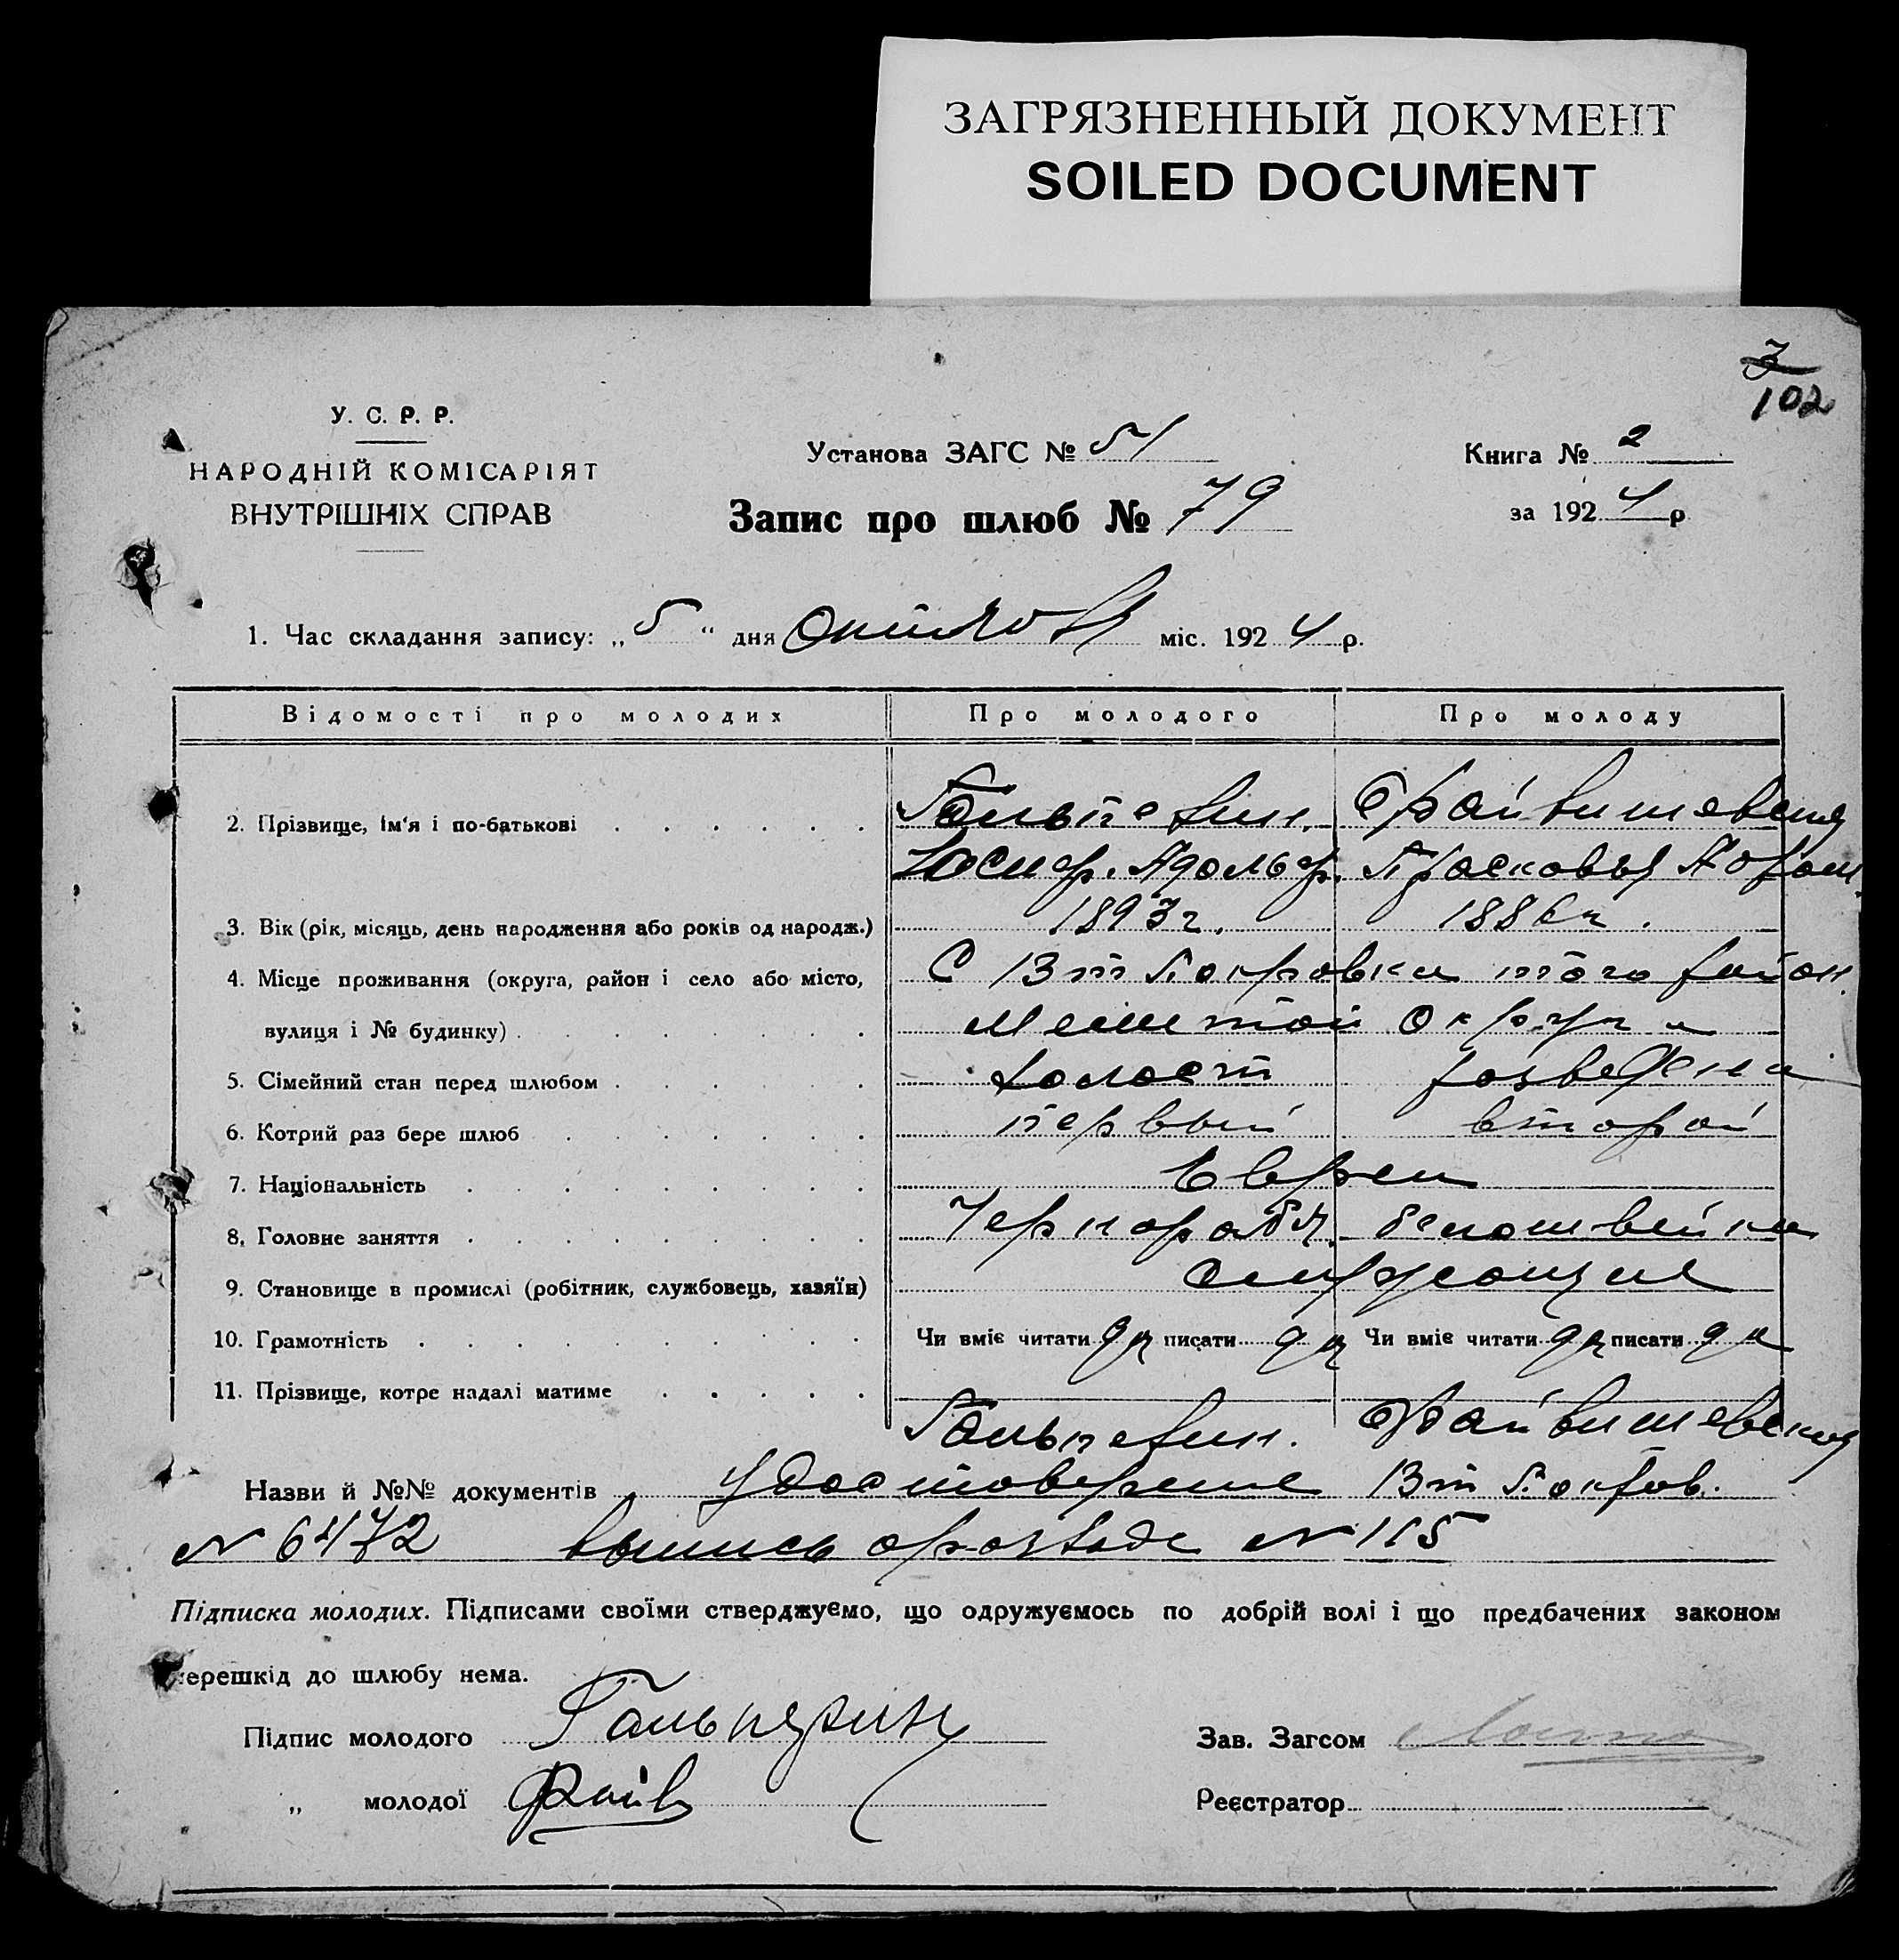 ЗАГРЯЗНЕННЫЙ ДОКУМЕНТ
SOILED DOCUMENT
3
102
У. С. Р. Р.
НАРОДНІЙ КОМІСАРІЯТ
ВНУТРІШНІХ СПРАВ
Установа ЗАГС № 51
Запис про шлюб № 79
Книга № 2
за 1924 р
1. Час складання запису: „5“ дня Октября міс. 1924 р.
Відомості про молодих Про молодого Про молоду
2. Прізвище, ім'я і по-батькові Гальперин.
Иосиф. Адольф. Прасковья
3. Вік (рік, місяць, день народження або років од народж.) 1893 г. 1886 г.
4. Місце проживання (округа, район і село або місто, С Покровка того район.
вулиця і № будинку) Округи
5. Сімейний стан перед шлюбом холост розведена
6. Котрий раз бере шлюб первый второй
7. Національність Евреи
8. Головне заняття Чернораб. белошвейка
9. Становище в промислі (робітник, службовець, хазяїн) Служащие
10. Грамотність Чи вміє читати да писати да Чи вміє читати да писати да
11. Прізвище, котре надалі матиме
Гальперин.
Назви й №№ документів Удостоверение Покров.
N 6472 выпись о разводе N 115
Підписка молодих. Підписами своїми стверджуємо, що одружуємось по добрій волі і що предбачених законом
перешкід до шлюбу нема.
Підпис молодого Гальперин
Зав. Загсом
„ молодої Фрайв
Реєстратор